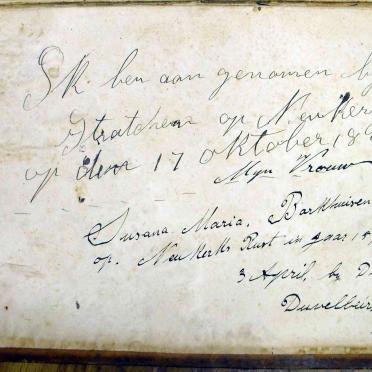 Ik ben aan genomen by
Stratchem op Neukerk
op den 17 oktober 18
Myn Vrouw
Susana Maria, Barkhuisen
op. Neukerks Rust in jaar 18
3 April, by D
Duvelburg